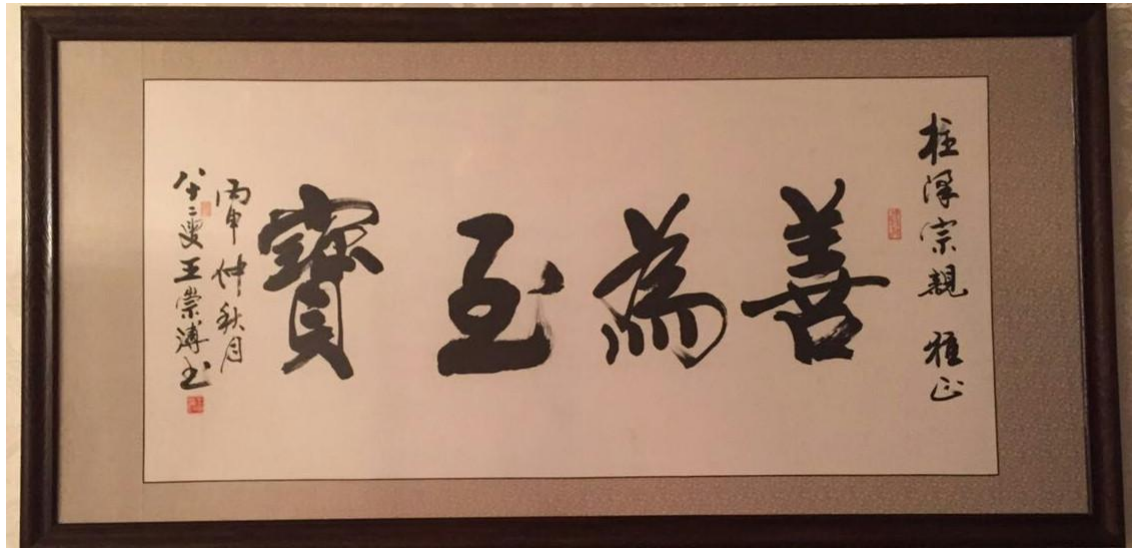 桂泽宗親 雅正
善為至寶
丙申仲秋月
八十二叟王崇溥书